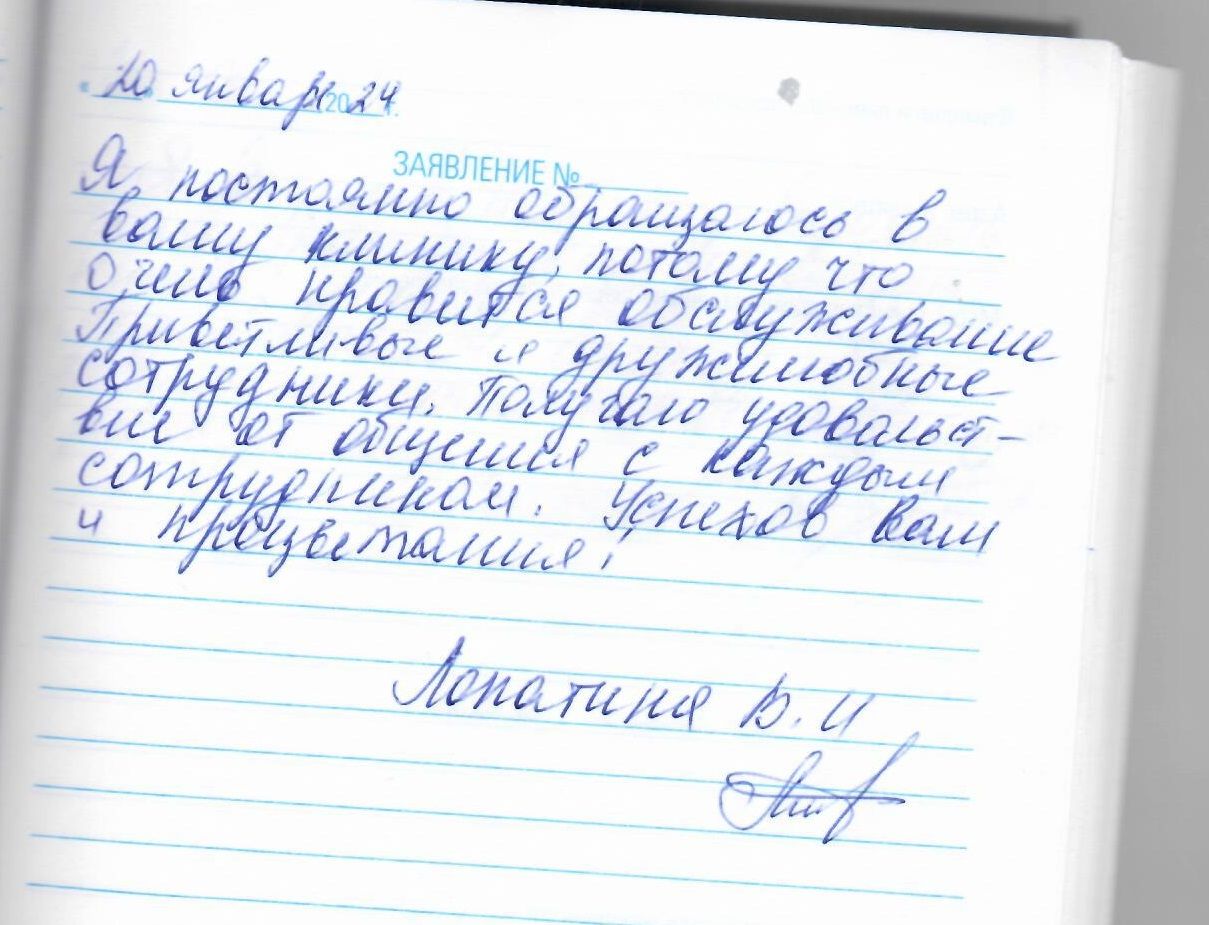 « 20 » января 2024 г.
ЗАЯВЛЕНИЕ №
Я постоянно обращаюсь в
вашу клинику, потому что
очень нравится обслуживание
Приветливые и дружелюбные
сотрудники. Получаю удовольст-
вие от общения с каждым
сотрудником. Успехов Вам
и процветания!
Лопатина В. И